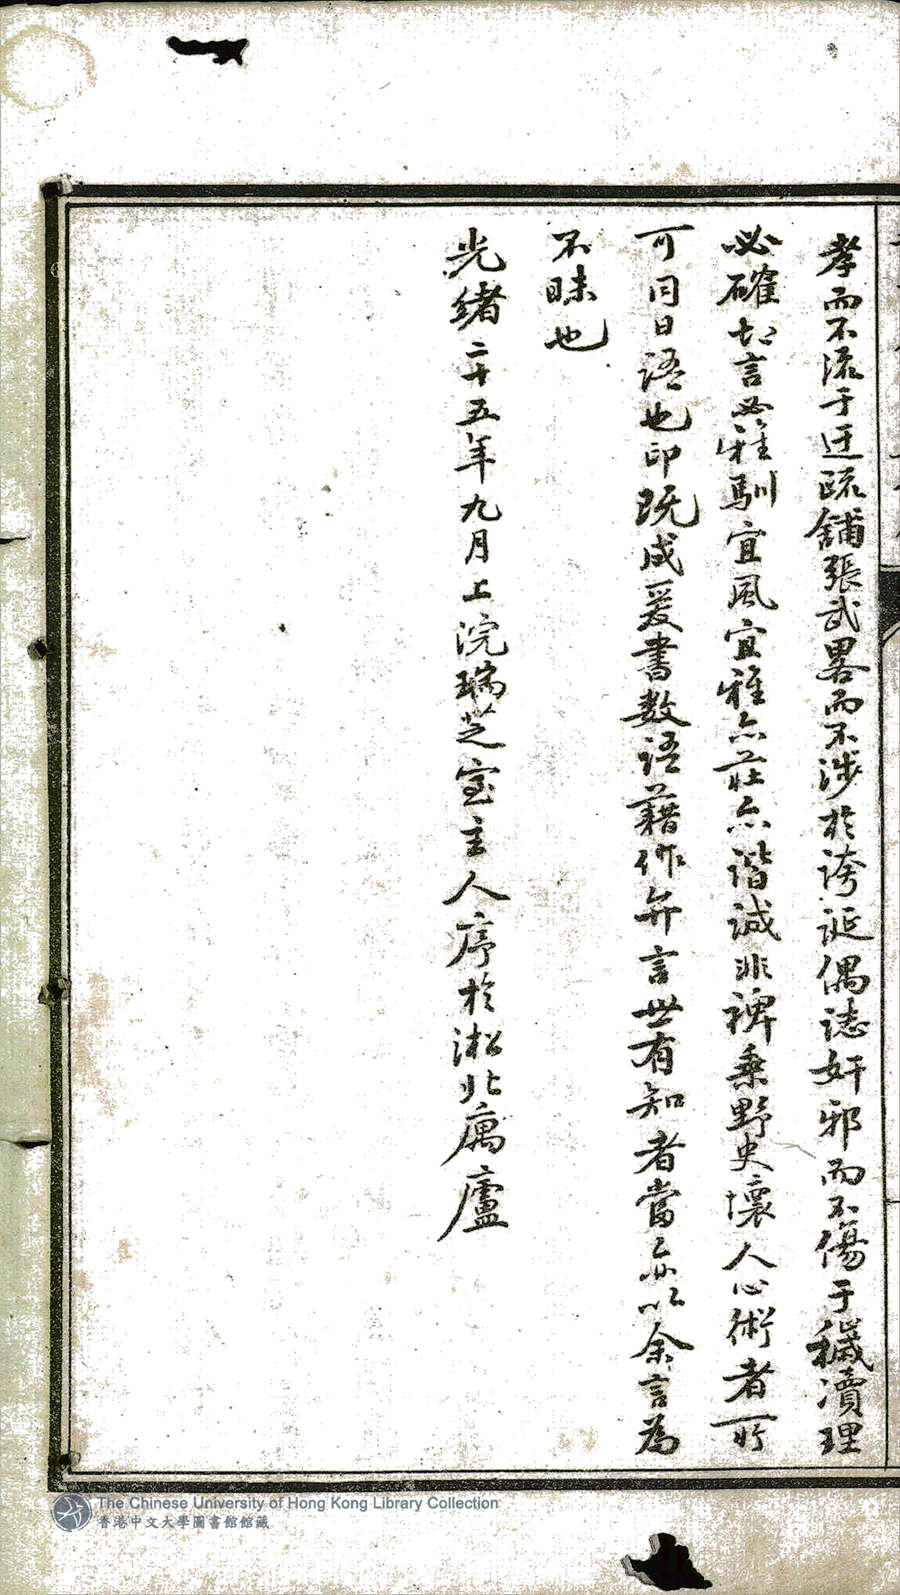 孝而不流于迂疏舖張武畧而不涉於誇誕偶誌奸邪而不傷于穢瀆理
必確切言必雅馴宜風宜雅亦莊亦諧誠非稗乘野史壞人心術者所
可同日語也印既成爰書數語藉作弁言世有知者當亦以余言為
不昧也
光緒二十五年九月上浣瑞芝室主人序於淞北寓廬
The Chinese University of Hong Kong Library Collection
香港中文大學圖書館館藏